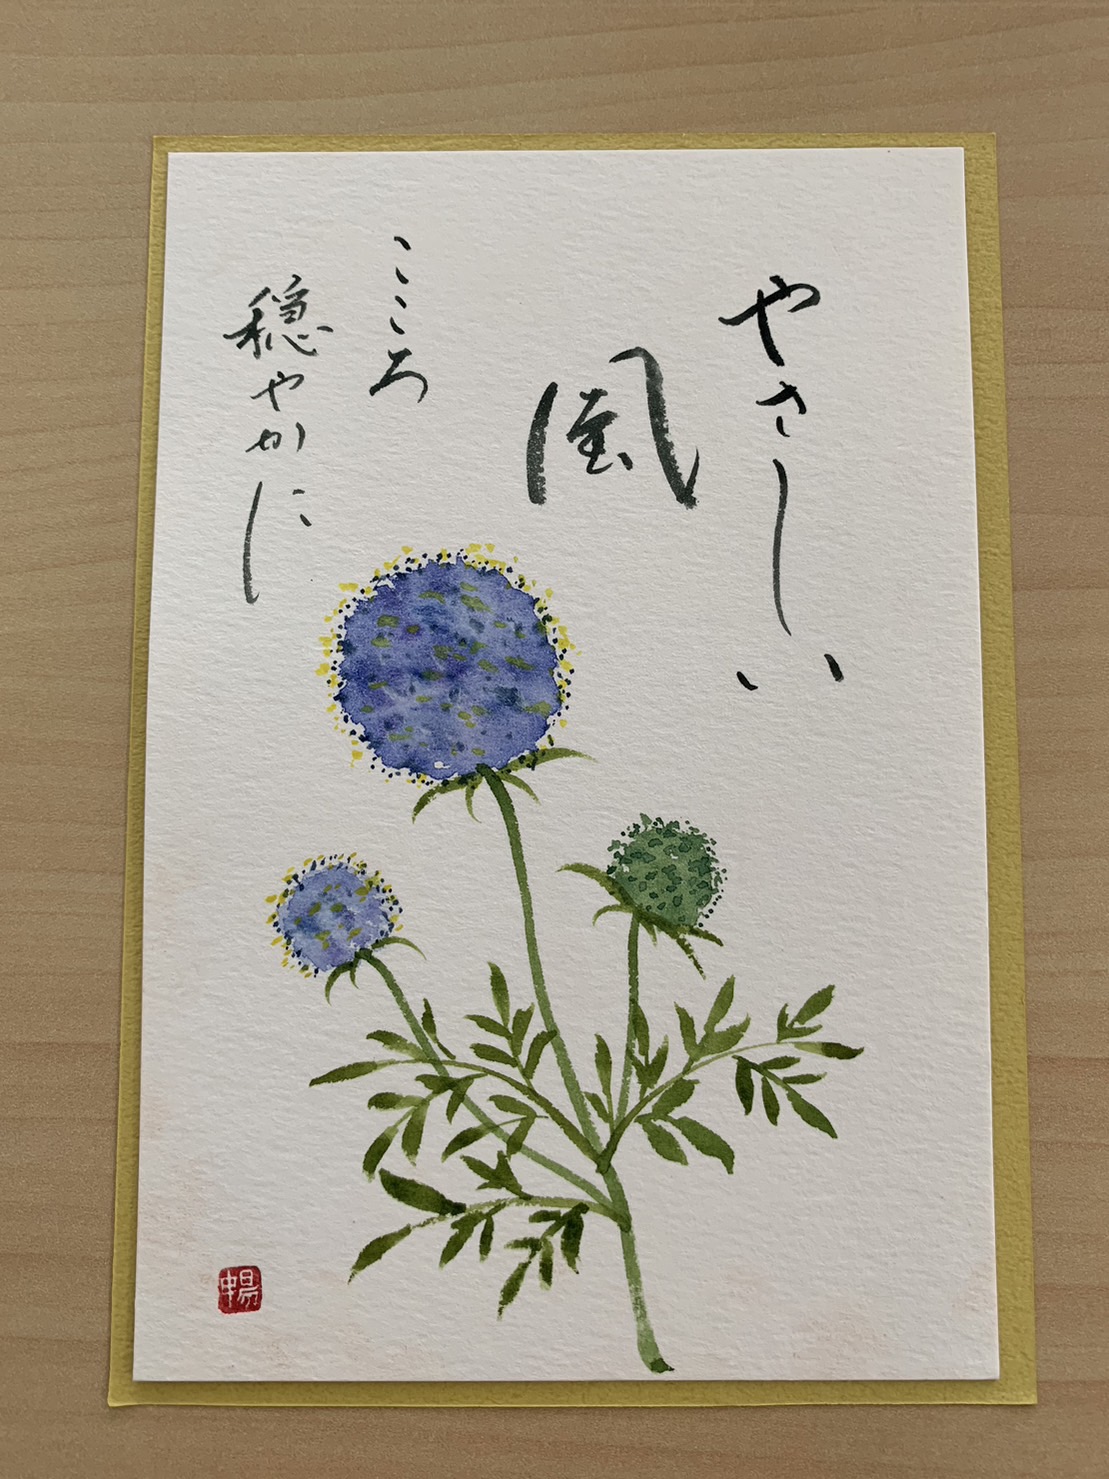 やさしい
風
こころ
穏やかに
暢